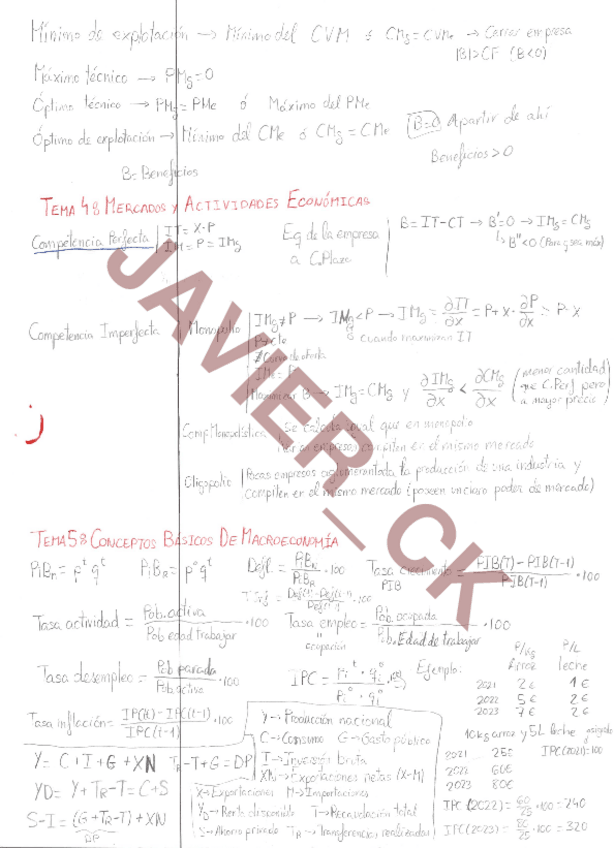 Mínimo de explotación → Mínimo del CVM ó CMg=CVMe → Cerrar empresa
|B|>CF (B<0)
Máximo técnico → PMg=0
Óptimo técnico → PMg=PMe ó Máximo del PMe
Óptimo de explotación → Mínimo del CMe ó CMg=CMe B=0 A partir de ahí
Beneficios>0
B=Beneficios
TEMA 4 MERCADOS Y ACTIVIDADES ECONÓMICAS
Competencia Perfecta | IT=X·P
IM=P=IMg
Eq de la empresa
a C.Plazo
B=IT-CT → B'=0 → IMg=CMg
B''<0 (Para q sea máx)
Competencia Imperfecta
Monopolio | IMg≠P → IMg<P → IMg=∂IT/∂x=P+X·∂P/∂x
Cuando maximiza IT
Curva de oferta
Maximizar B → IMg=CMg y ∂IMg/∂x < ∂CMg/∂x (menor cantidad que C.Perf pero a mayor precio)
Comp.Monopolística | Se calcula igual que en monopolio
empresas compiten en el mismo mercado
Oligopolio | Pocas empresas la producción de una industria y
compiten en el mismo mercado (poseen un cierto poder de mercado)
TEMA 5 CONCEPTOS BÁSICOS DE MACROECONOMÍA
PIBn=p^t q^t PIBR=p^o q^t Defl.=PIBn/PIBR·100 Tasa crecimiento PIB=PIB(T)-PIB(T-1)/PIB(T-1)·100
Tasa actividad=Pob.activa/Pob edad trabajar·100 Tasa empleo=Pob ocupada/Pob.Edad de trabajar·100
ocupación
Tasa desempleo=Pob parada/Pob activa·100
IPC=Pi^t·qi^o/Pi^o·qi^o
Ejemplo:
P/Kg arroz P/L leche
2021 2€ 1€
2022 5€ 2€
2023 7€ 2€
Tasa inflación=IPC(t)-IPC(t-1)/IPC(t-1)·100
10kg arroz y 5L leche asignado
2021 25€ IPC(2021)=100
2022 60€
2023 80€
IPC(2022)=60/25·100=240
IPC(2023)=80/25·100=320
Y=C+I+G+XN TR-T+G=DP
YD=Y+TR-T=C+S
S-I=(G+TR-T)+XN
DP
Y→Producción nacional
C→Consumo G→Gasto público
I→Inversión bruta
XN→Exportaciones netas (X-M)
X→Exportaciones M→Importaciones
YD→Renta disponible T→Recaudación total
S→Ahorro privado TR→Transferencias realizadas
JAVIER_CK